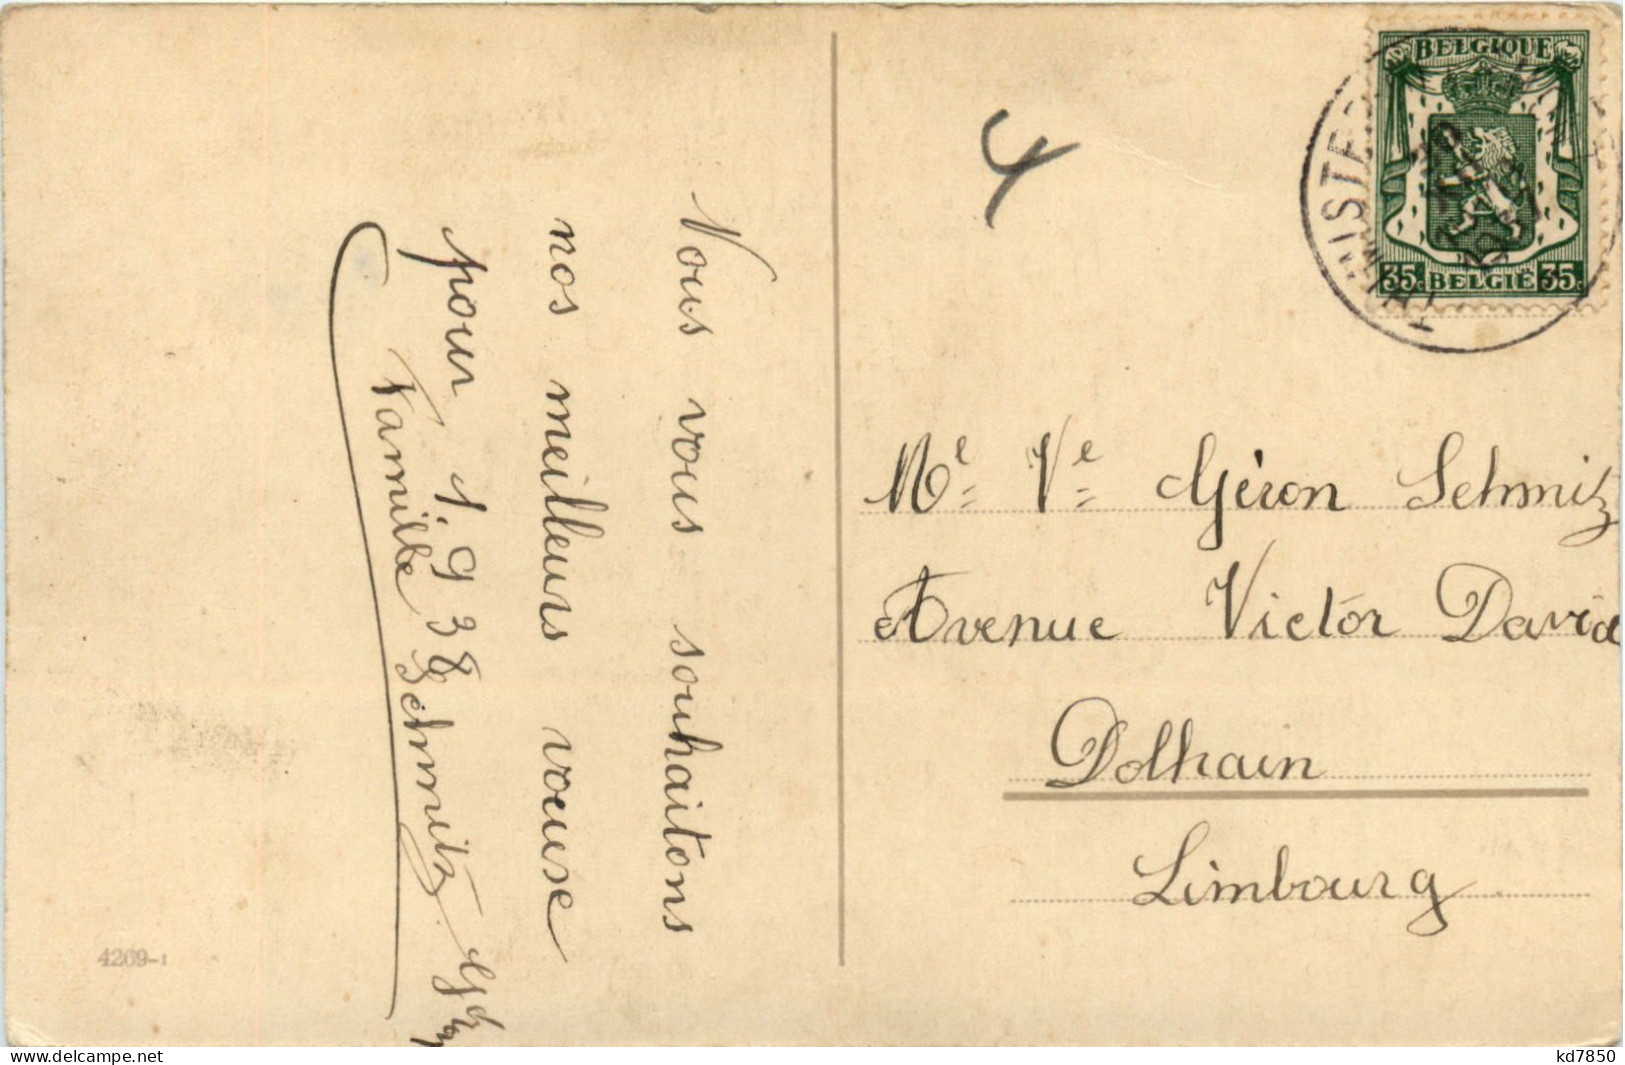 Nous vous souhaitons
nos meilleurs voeuse
pour 1.938
Famille Schmitz
BELGIQUE
35c BELGIË 35c
4
Me Ve Géron Schmitz
Avenue Victor David
Dolhain
Limbourg
4269-1
www.delcampe.net
kd7850